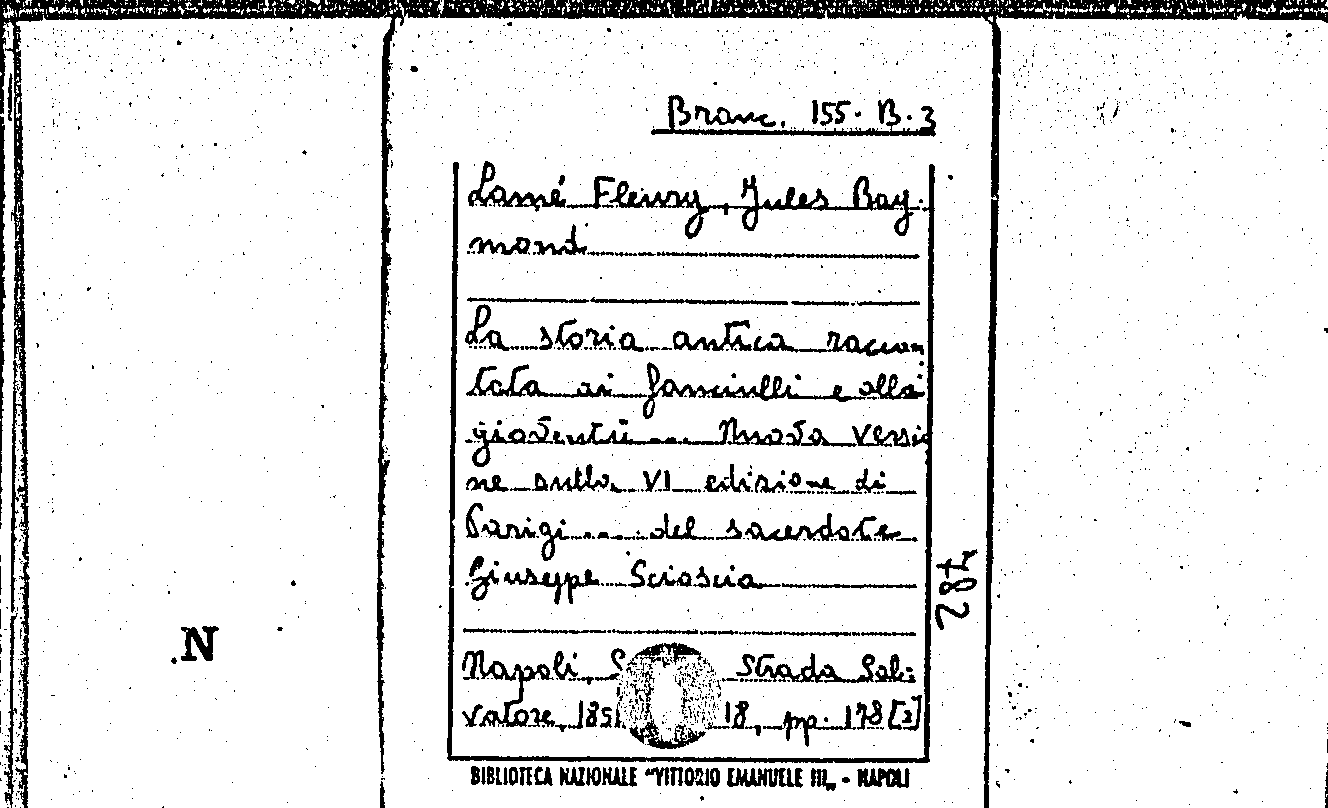 Branc. 155. B. 3
Lamé Fleury, Jules Ray-
mond
La storia antica raccon
tata ai fanciulli e alla
gioventù ... Nuova versio
ne sulla VI edizione di
Parigi .... del sacerdote
Giuseppe Scioscia
782
N
Napoli, S Strada Sal-
vatore, 185 18, pp. 178 [2]
BIBLIOTECA NAZIONALE "VITTORIO EMANUELE III„ - NAPOLI